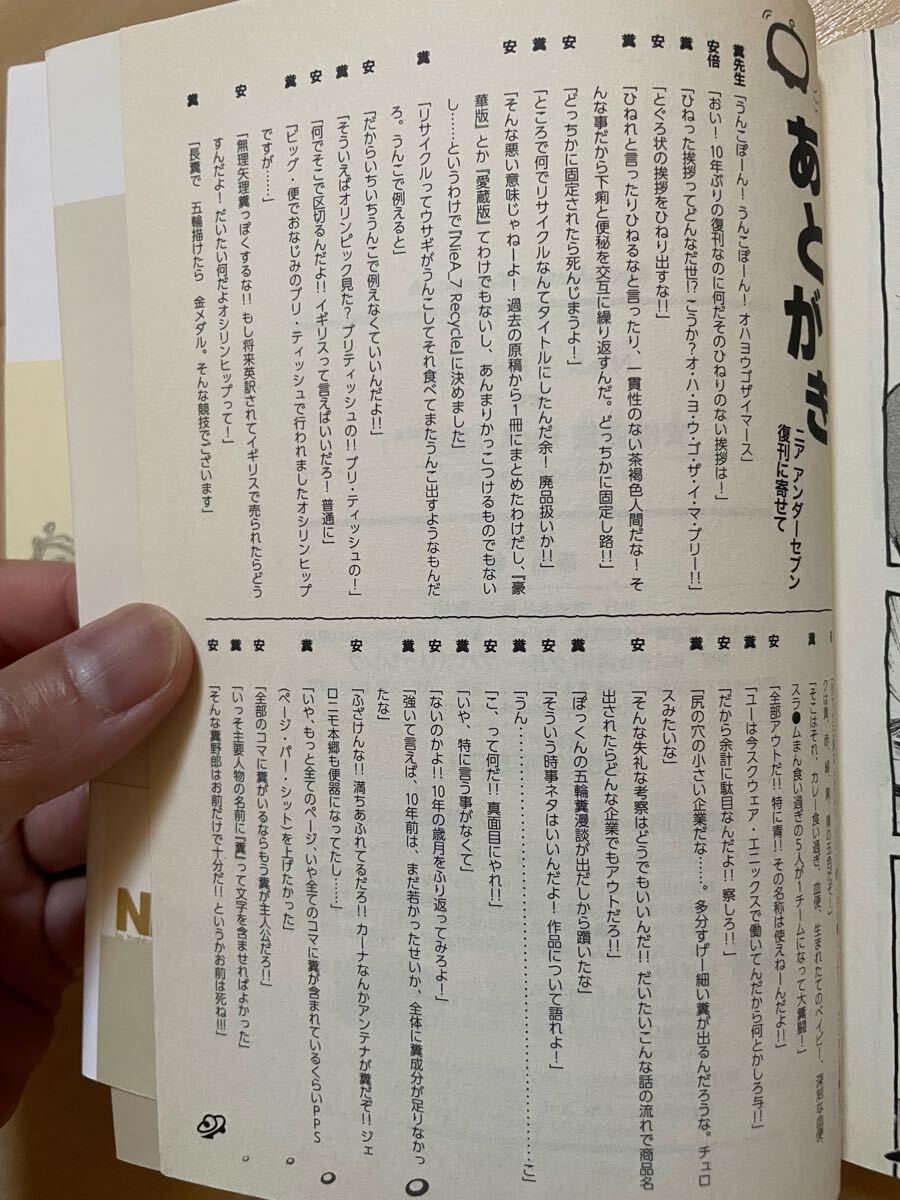 あとがき
ニア アンダーセブン
復刊に寄せて
糞先生「うんこぽーん！うんこぽーん！オハヨウゴザイマース」
安倍「おい！10年ぶりの復刊なのに何だそのひねりのない挨拶は！」
糞「ひねった挨拶ってどんなだ世!?こうか？オ・ハ・ヨ・ウ・ゴ・ザ・イ・マ・プリー!!」
安「とぐろ状の挨拶をひねり出すな!!」
糞「ひねれと言ったりひねるなと言ったり、一貫性のない茶褐色人間だな！そ
んな事だから下痢と便秘を交互に繰り返すんだ。どっちかに固定し路!!」
安「どっちかに固定されたら死んじまうよ！」
糞「ところで何でリサイクルなんてタイトルにしたんだ余！廃品扱いか!!」
安「そんな悪い意味じゃねーよ！過去の原稿から1冊にまとめたわけだし、『豪
華版』とか『愛蔵版』てわけでもないし、あんまりかっこつけるものでもない
し……というわけで『NieA_7 Recycle』に決めました」
糞「リサイクルってウサギがうんこしてそれ食べてまたうんこ出すようなもんだ
ろ。うんこで例えると」
安「だからいちいちうんこで例えなくていいんだよ!!」
糞「そういえばオリンピック見た？ブリティッシュの!!ブリ・ティッシュの！」
安「何でそこで区切るんだよ!!イギリスって言えばいいだろ！普通に」
糞「ビッグ・便でおなじみのブリ・ティッシュで行われましたオシリンヒップ
ですが……」
安「無理矢理糞っぽくするな!!もし将来英訳されてイギリスで売られたらどう
すんだよ！だいたい何だよオシリンヒップって！」
糞「長糞で　五輪描けたら　金メダル。そんな競技でございます」
糞「そこはそれ、カレー食い過ぎ、血便、生まれたてのベイビー、深刻な血便、
スラ●ムまん食い過ぎの5人が1チームになって大糞闘！」
安「全部アウトだ!!特に青!!その名称は使えねーんだよ!!」
糞「ユーは今スクウェア・エニックスで働いてんだから何とかしろ与!!」
安「だから余計に駄目なんだよ!!察しろ!!」
糞「尻の穴の小さい企業だな……。多分すげー細い糞が出るんだろうな。チュロ
スみたいな」
安「そんな失礼な考察はどうでもいいんだ!!だいたいこんな話の流れで商品名
出されたらどんな企業でもアウトだろ!!」
糞「ぼっくんの五輪糞漫談が出だしから躓いたな」
安「そういう時事ネタはいいんだよ！作品について語れよ！」
糞「うん……………………………………こ」
安「こ、って何だ!!真面目にやれ!!」
糞「いや、特に言う事がなくて」
安「ないのかよ!!10年の歳月をふり返ってみろよ！」
糞「強いて言えば、10年前は、まだ若かったせいか、全体に糞成分が足りなかっ
たな」
安「ふざけんな!!満ちあふれてるだろ!!カーナなんかアンテナが糞だぞ!!ジェ
ロニモ本郷も便器になってたし……」
糞「いや、もっと全てのページ、いや全てのコマに糞が含まれているくらいPPS
（ページ・パー・シット）を上げたかった」
安「全部のコマに糞がいるならもう糞が主人公だろ!!」
糞「いっそ主要人物の名前に『糞』って文字を含ませればよかった」
安「そんな糞野郎はお前だけで十分だ!!というかお前は死ね!!!」
N